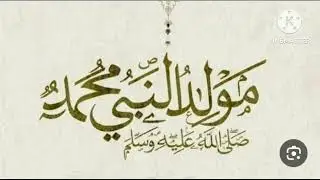 مَوْلِدُ النَّبِيِّ مُحَمَّدٍ
صَلَّى اللهُ عَلَيْهِ وَسَلَّمَ